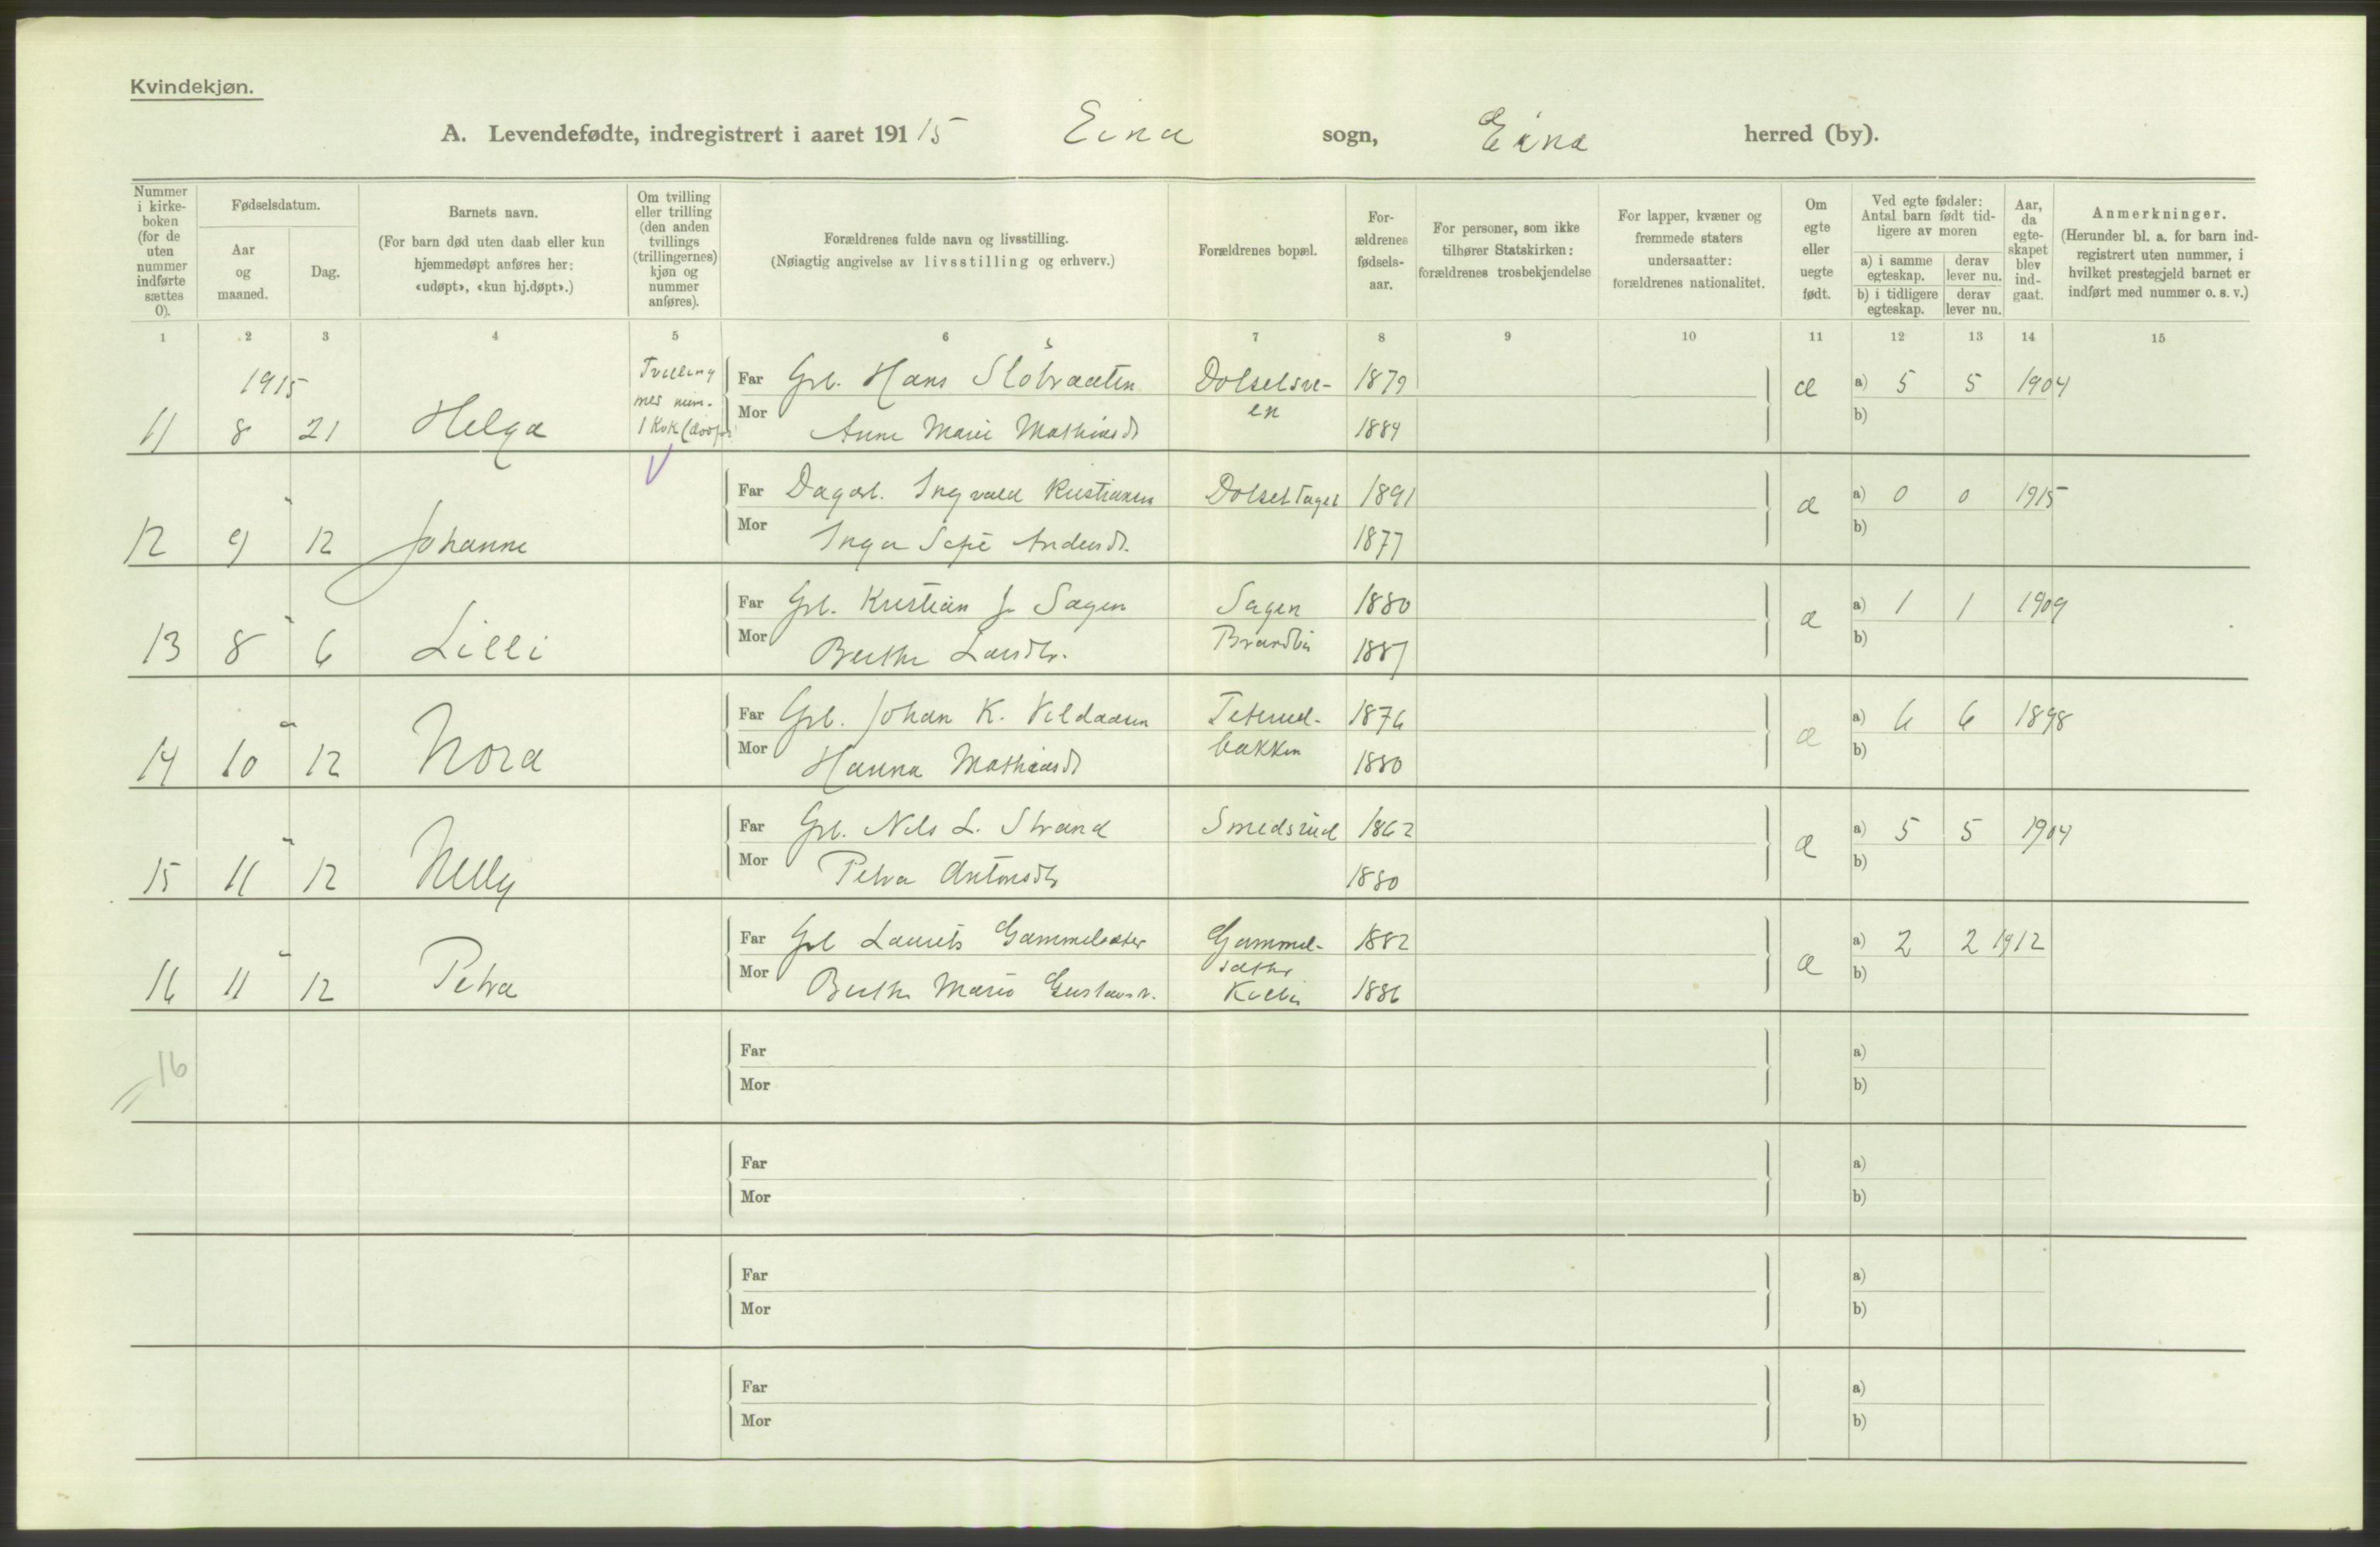 Kvindekjøn.
A. Levendefødte, indregistrert i aaret 19115 Eina sogn, Eina herred (by).
Nummer i kirke-boken (for de uten nummer indførte sættes 0).
Fødselsdatum.
Aar og maaned.
Dag.
Barnets navn.
(For barn død uten daab eller kun hjemmedøpt anføres her: «udøpt», «kun hj.døpt».)
Om tvilling eller trilling (den anden tvillings (trillingernes) kjøn og nummer anføres).
Forældrenes fulde navn og livsstilling.
(Nøiagtig angivelse av livsstilling og erhverv.)
Forældrenes bopæl.
For-ældrenes fødsels-aar.
For personer, som ikke tilhører Statskirken: forældrenes trosbekjendelse
For lapper, kvæner og fremmede staters undersaatter: forældrenes nationalitet.
Om egte eller uegte født.
Ved egte fødsler: Antal barn født tid-ligere av moren
a) i samme egteskap.
derav lever nu.
b) i tidligere egteskap.
derav lever nu.
Aar, da egte-skapet blev ind-gaat.
Anmerkninger.
(Herunder bl. a. for barn ind-registrert uten nummer, i hvilket prestegjeld barnet er indført med nummer o. s. v.)
1 2 3 4 5 6 7 8 9 10 11 12 13 14 15
1915 Tvilling Far Grb. Hans Slåbraaten Dolselsve- 1879 æ a) 5 5 1904
11 8 21 Helga 1 Kvk Mor Anne Marie Mathiasdt en 1884 b)
Far Dagarb. Ingvald Kristiansen 1891 æ a) 0 0 1915
12 9 12 Johanne Mor Inga Sofie Andersdt. 1877 b)
Far Grb. Kristian J. Sagen Sagen 1880 æ a) 1 1 1909
13 8 6 Lilli Mor Berthe Larsdtr. 1887 b)
Far Grb. Johan K. Vildaasen Teterud- 1876 æ a) 6 6 1898
14 10 12 Nora Mor Hanna Mathiasdt bakken 1880 b)
Far Grb. Nils L. Strand Smedsrud 1862 æ a) 5 5 1904
15 11 12 Nelly Mor Petra Antonsdtr 1880 b)
Far Grb Laurits Gammelsæter Gammel- 1882 æ a) 2 2 1912
16 11 12 Petra Mor Berthe Marie Gustavsdt. sæther 1886 b)
Far a)
16 Mor b)
Far a)
Mor b)
Far a)
Mor b)
Far a)
Mor b)